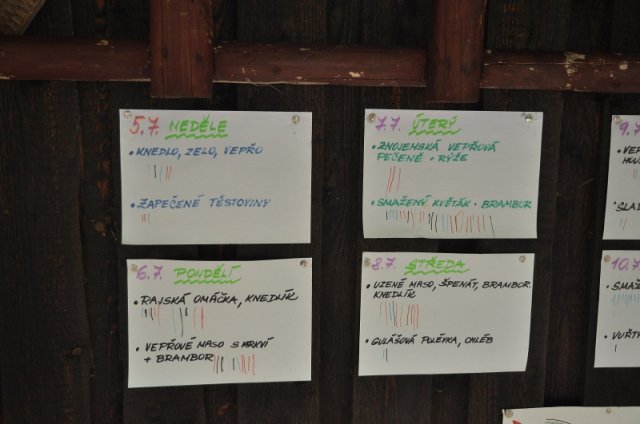 5.7. NEDĚLE
• KNEDLO, ZELO, VEPŘO
• ZAPEČENÉ TĚSTOVINY
6.7. PONDĚLÍ
• RAJSKÁ OMÁČKA, KNEDLÍK
• VEPŘOVÉ MASO S MRKVÍ
+ BRAMBOR
7.7. ÚTERÝ
• ZNOJEMSKÁ VEPŘOVÁ
PEČENĚ • RÝŽE
• SMAŽENÝ KVĚTÁK • BRAMBOR
8.7. STŘEDA
• UZENÉ MASO, ŠPENÁT, BRAMBOR.
KNEDLÍK
• GULÁŠOVÁ POLÉVKA, CHLÉB
9.7
10.7